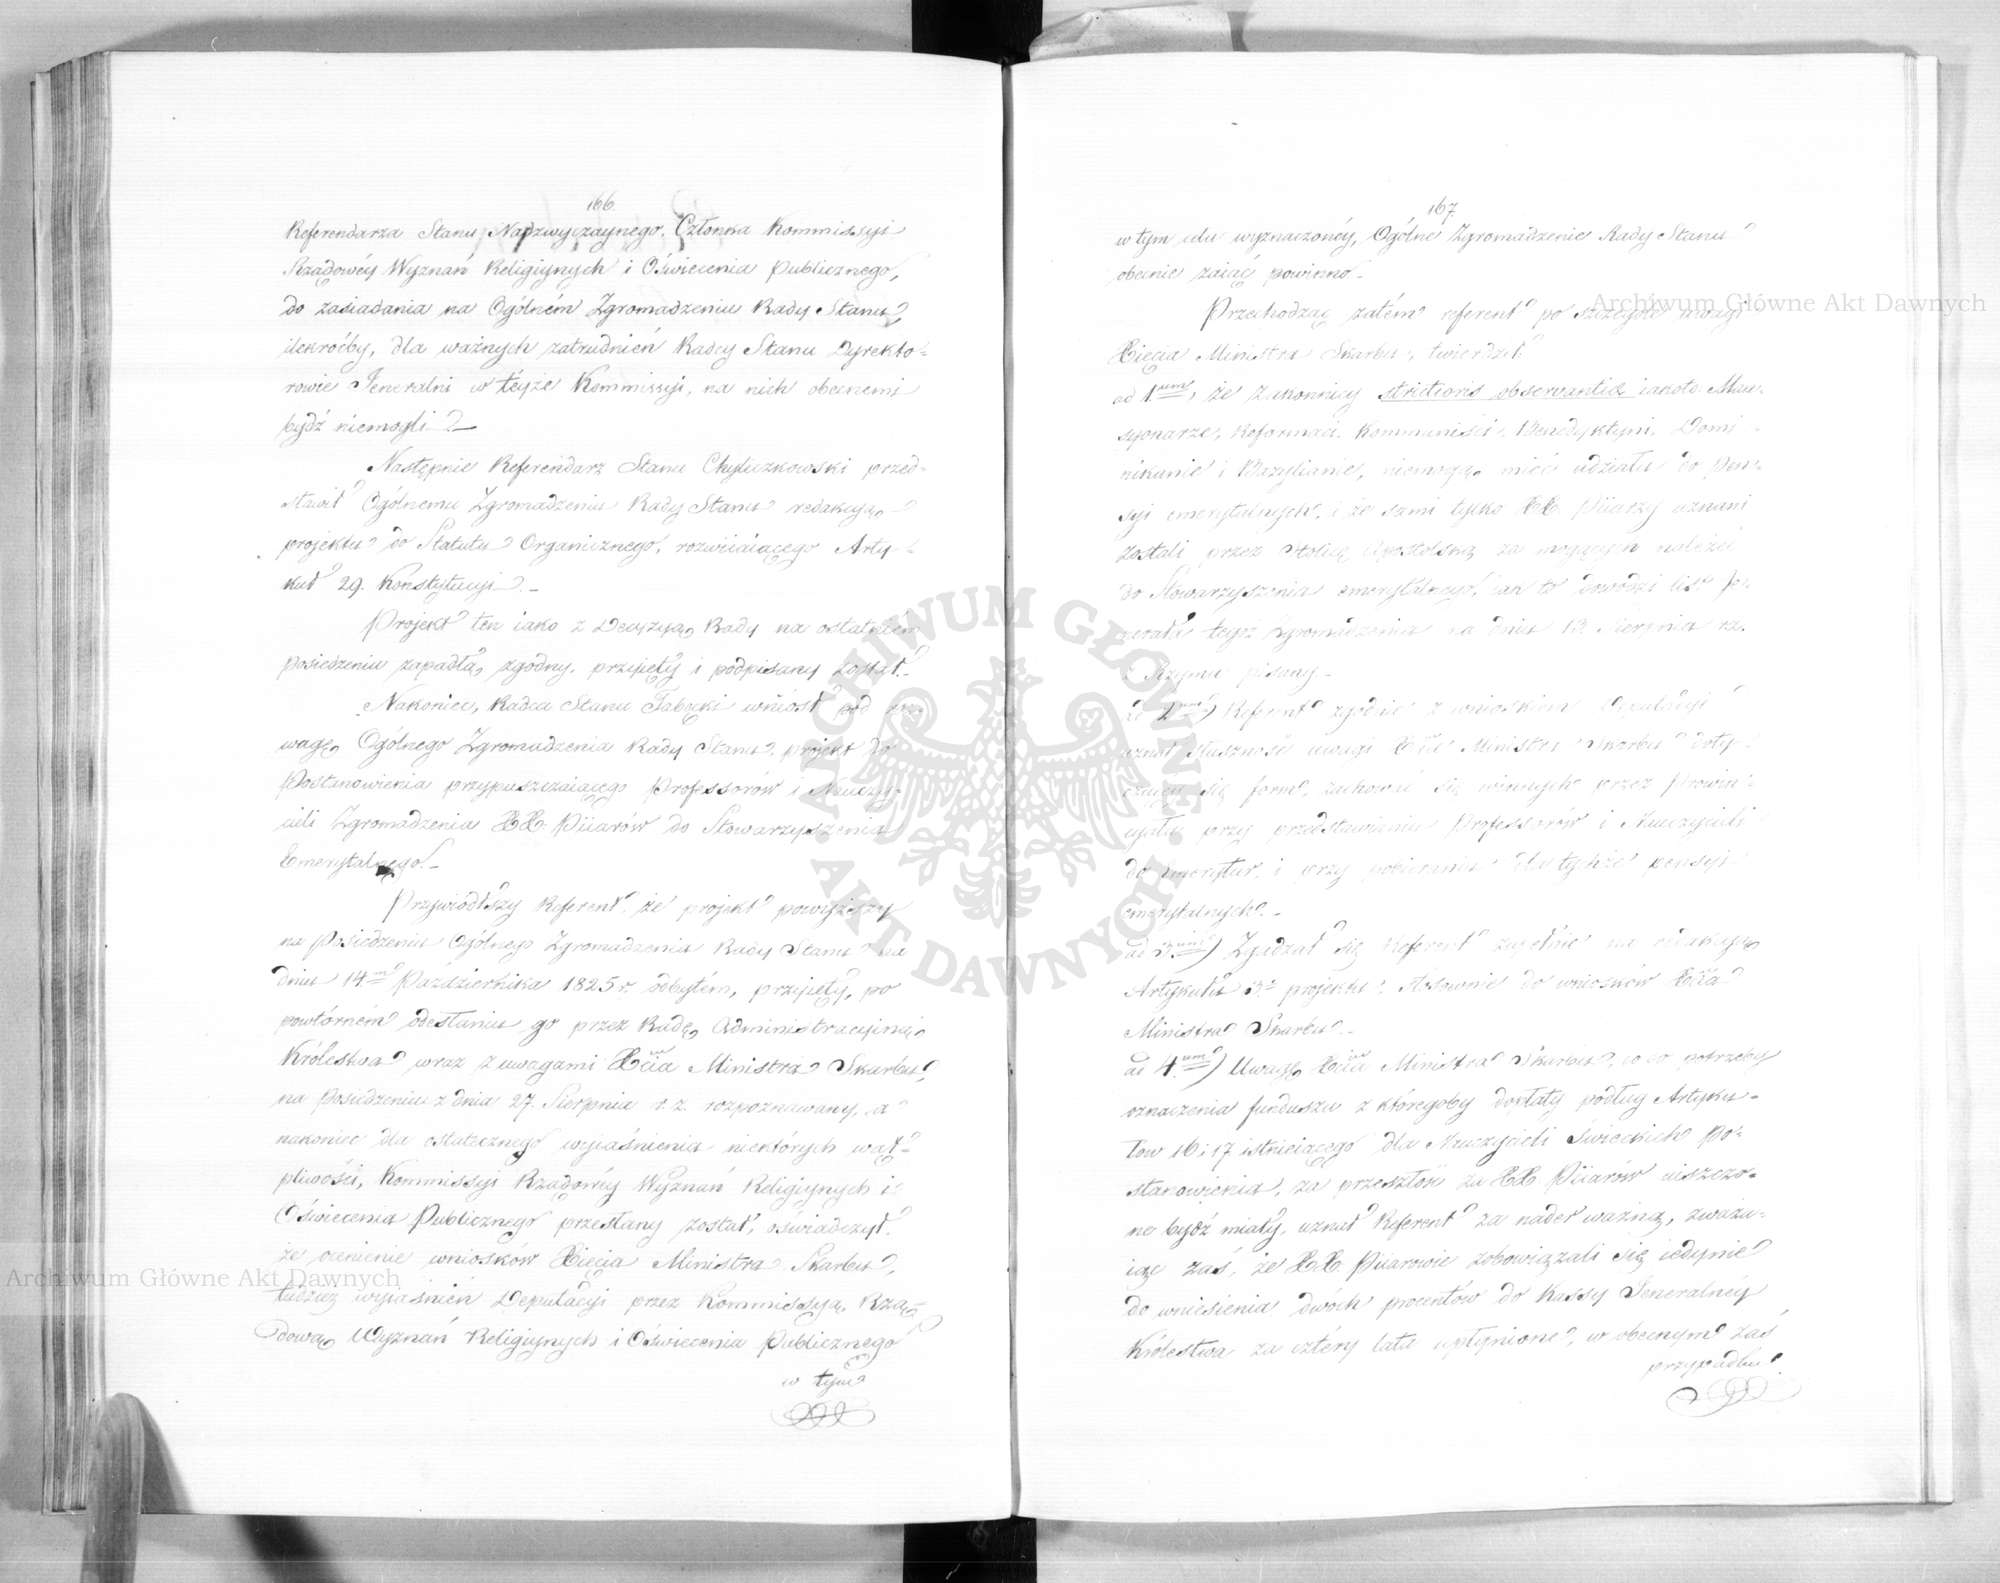 166.
Referendarza Stanu Nadzwyczaynego, Członka Kommissyi
Rządowéy Wyznań Religiynych i Oświecenia Publicznego,
do zasiadania na Ogólném Zgromadzeniu Rady Stanu,
ilekroćby, dla ważnych zatrudnień Radcy Stanu Dyrekto-
rowie Jeneralni w téyże Kommissyi, na nich obecnemi
bydź niemogli.
Następnie Referendarz Stanu Chyliczkowski przed-
stawił Ogólnemu Zgromadzeniu Rady Stanu redakcyią
projektu do Statutu Organicznego, rozwiiaiącego Arty-
kuł 29. Konstytucyi.
Projekt ten iako z Decyzyą Rady na ostatniém
posiedzeniu zapadłą zgodny, przyięty i podpisany został.
Nakoniec, Radca Stanu Tabęcki wniósł pod roz-
wagę Ogólnego Zgromadzenia Rady Stanu, projekt do
Postanowienia przypuszczaiącego Professorów i Nauczy-
cieli Zgromadzenia XX. Piiarów do Stowarzyszenia
Emerytalnego.
Przywiódłszy Referent, że projekt powyższy
na Posiedzeniu Ogólnego Zgromadzenia Rady Stanu na
dniu 14m Października 1825 r. odbytém, przyięty, po
powtórném odesłaniu go przez Radę Administracyiną
Królestwa wraz z uwagami Xcia Ministra Skarbu,
na Posiedzeniu z dnia 27. Sierpnia r. z. rozpoznawany, a
nakoniec dla ostatecznego wyiaśnienia niektórych wąt-
pliwości, Kommissyi Rządowéy Wyznań Religiynych i
Oświecenia Publicznego przesłany został, oświadczył,
że ocenienie wniosków Xięcia Ministra Skarbu,
tudzież wyiaśnień Deputacyi przez Kommissyą Rzą-
dową Wyznań Religiynych i Oświecenia Publicznego
w tym
167.
w tym celu wyznaczonéy, Ogólne Zgromadzenie Rady Stanu
obecnie zaiąć powinno.
Przechodząc zatém referent po szczególe uwagi
Xięcia Ministra Skarbu, twierdził:
ad 1um, że Zakonnicy strictioris observantiæ iakoto: Mans-
syonarze, Reformaci, Kommuniści, Benedyktyni, Domi-
nikanie i Bazylianie, niemogą mieć udziału do Pen-
syi emerytalnych, i że sami tylko XX. Piiarzy uznani
zostali przez Stolicę Apostolską za mogących należeć
do Stowarzyszenia emerytalnego, iak to dowodzi list Je-
nerała tegoż Zgromadzenia na dniu 13 Sierpnia r.z.
z Rzymu pisany.
ad 2um) Referent zgodnie z wnioskiem Deputacyi
uznał słuszność uwagi Xcia Ministra Skarbu doty-
czącey się form, zachować się winnych przez Prowin-
cyała przy przedstawianiu Professorów i Nauczycieli
do Emerytur, i przy pobieraniu dla tychże pensyi
emerytalnych.
ad 3um) Zgadzał się Referent zupełnie na redakcyią
Artykułu 3o projektu, stosownie do wniosków Xcia
Ministra Skarbu.
ad 4um) Uwagę Xcia Ministra Skarbu, co do potrzeby
oznaczenia funduszu z któregoby dopłaty podług Artyku-
łów 16 i 17 istnieiącego dla Nauczycieli Świeckich Po-
stanowienia, za przeszłość za XX. Piiarów uiszczo-
ne bydź miały, uznał Referent za nader ważną, zważa-
iąc zaś, że XX. Piiarowie zobowiązali się iedynie
do wniesienia dwóch procentów do Kassy Jeneralnéy
Królestwa za cztéry lata upłynione, w obecnym zaś
przypadku
Archiwum Główne Akt Dawnych
Archiwum Główne Akt Dawnych
ARCHIWUM GŁÓWNE AKT DAWNYCH